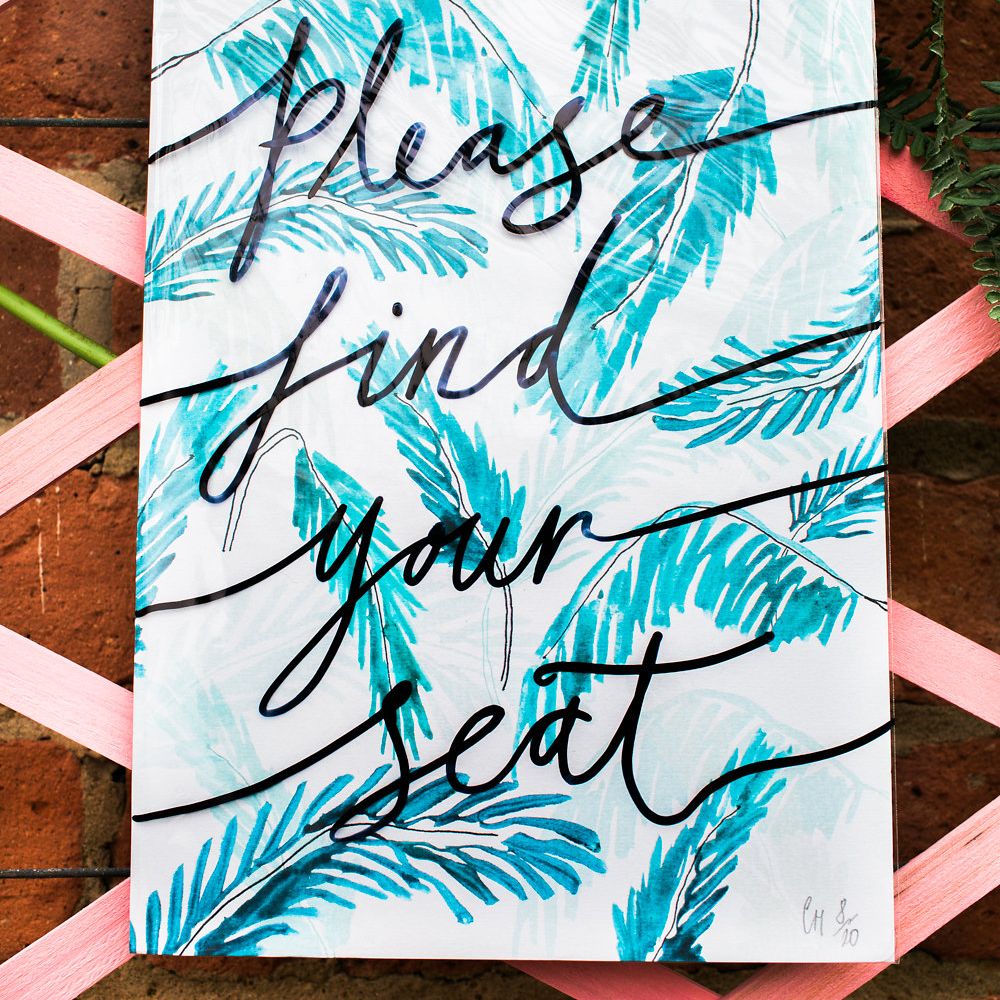 please
find
your
seat
CH 8/20